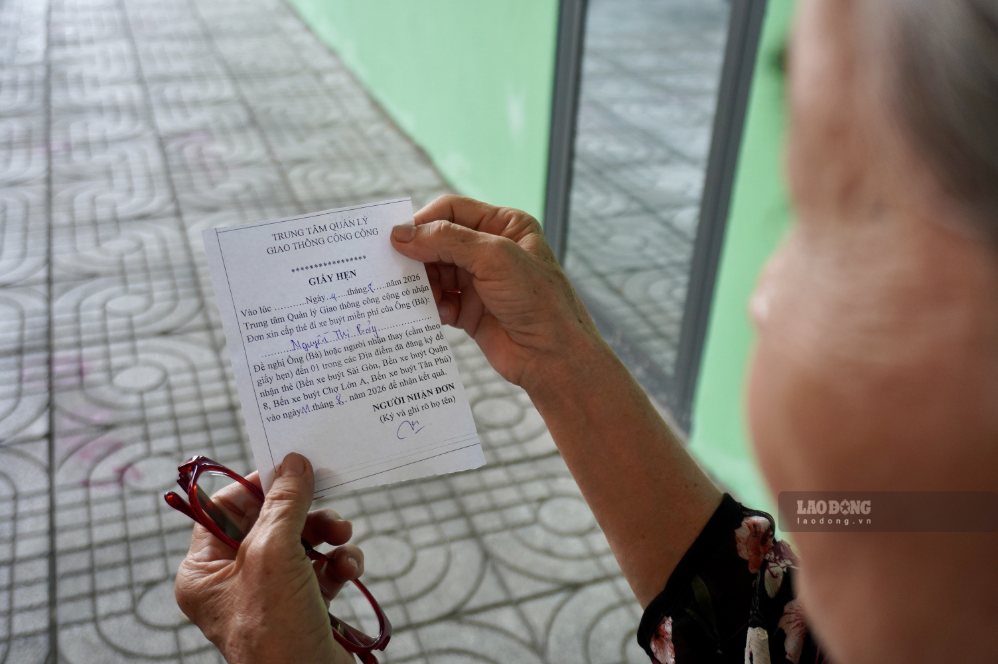 TRUNG TÂM QUẢN LÝ
GIAO THÔNG CÔNG CỘNG
*****************
GIẤY HẸN
Vào lúc ............Ngày..4....tháng.8....năm 2026
Trung tâm Quản lý Giao thông công cộng có nhận
Đơn xin cấp thẻ đi xe buýt miễn phí của Ông (Bà):
Nguyễn Thị Bảy
Đề nghị Ông (Bà) hoặc người nhận thay (cầm theo
giấy hẹn) đến 01 trong các Địa điểm đã đăng ký để
nhận thẻ (Bến xe buýt Sài Gòn, Bến xe buýt Quận
8, Bến xe buýt Chợ Lớn A, Bến xe buýt Tân Phú)
vào ngày 11 tháng 8. năm 2026 để nhận kết quả.
NGƯỜI NHẬN ĐƠN
(Ký và ghi rõ họ tên)
LAO ĐỘNG
laodong.vn